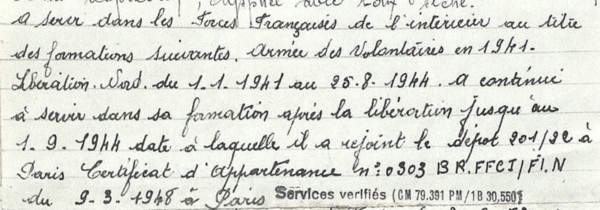 A servi dans les Forces Françaises de l'intérieur au titre
des formations suivantes. Armée des Volontaires en 1941.
Libération. Nord. du 1.1.1941 au 25.8.1944. A continué
à servir dans sa formation après la libération jusqu'au
1.9.1944 date à laquelle il a rejoint le dépot 201/22 à
Paris Certificat d'Appartenance n° 0303 BR.FFCI/FI.N
du 9.3.1948 à Paris Services vérifiés (CM 79.391 PM/1B 30.550)